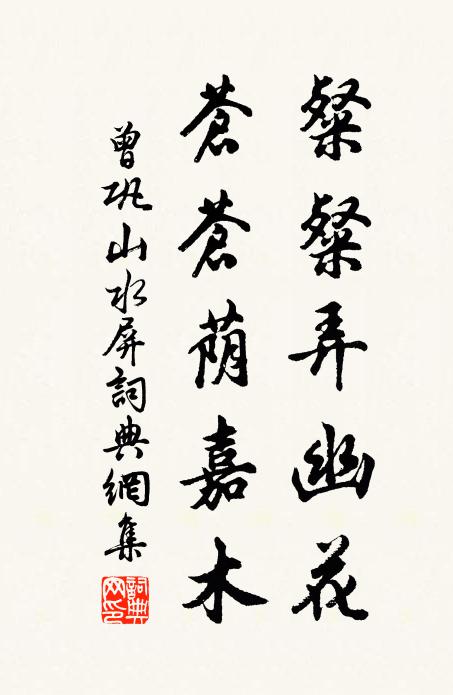 粲粲弄幽花
蒼蒼蔭嘉木
曾巩山水屏詞典網集
詞典网印